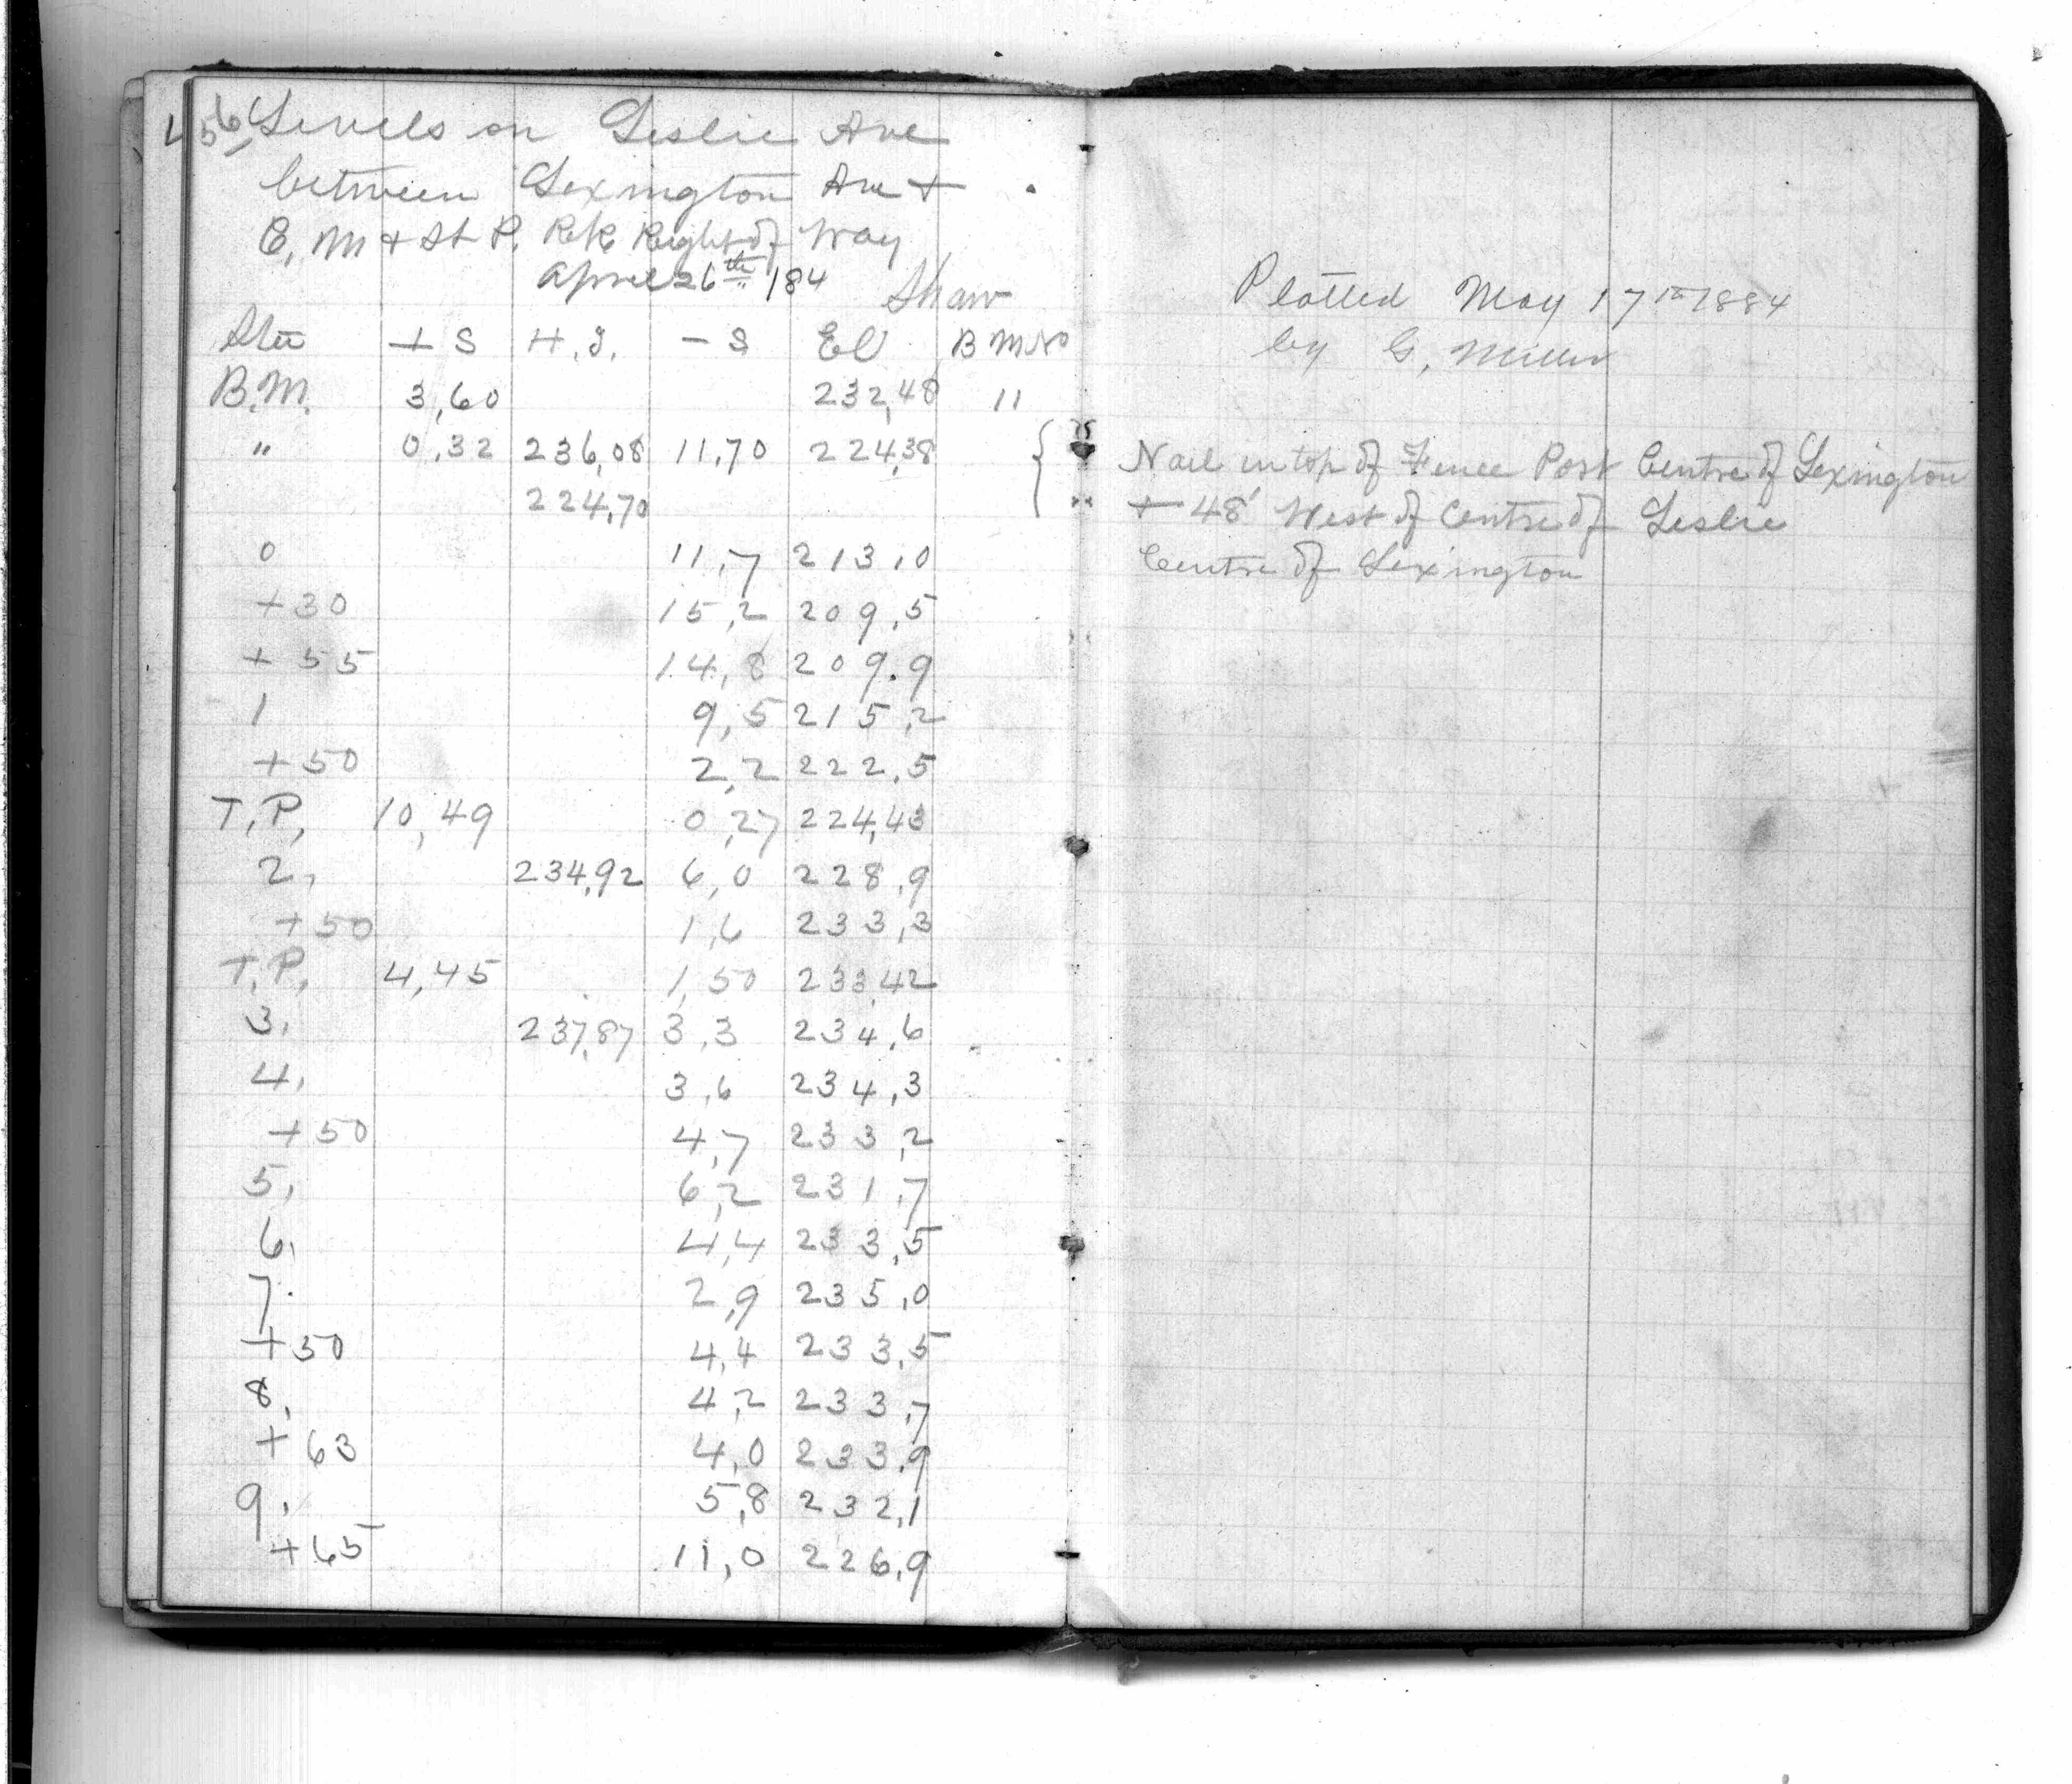 456
Levels on Leslie Ave
between Lexington Ave +
C, M + St P. R.R. Right of Way
April 26th 184
Shaw
Sta + S H.I. - S El B M No
B.M. 3,60 232,48 11
" 0,32 236,08 11,70 224,38
224,70
0 11,7 213,0
+30 15,2 209,5
+55 14,8 209.9
1 9,5 215,2
+50 2,2 222,5
T,P, 10,49 0,27 224,43
2, 234,92 6,0 228,9
+50 1,6 233,3
T,P, 4,45 1,50 233,42
3, 237,87 3,3 234,6
4, 3,6 234,3
+50 4,7 233,2
5, 6,2 231,7
6, 4,4 233,5
7. 2,9 235,0
+50 4,4 233,5
8, 4,2 233,7
+63 4,0 233,9
9, 5,8 232,1
+65 11,0 226,9
Plotted May 17th 1884
by G, Miller
Nail in top of Fence Post Centre of Lexington
+ 48' West of Centre of Leslie
Centre of Lexington